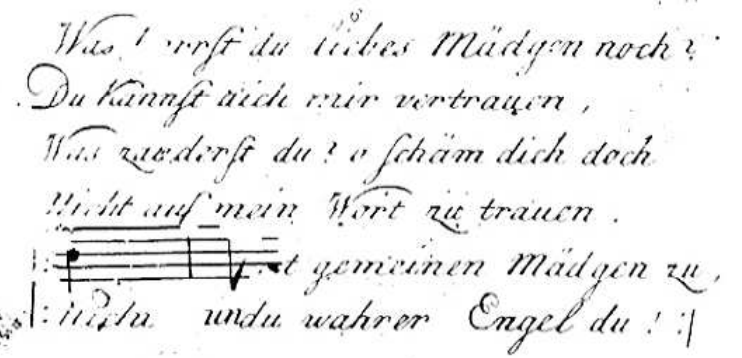 Was du liebes Mädgen noch?
Du kannst dich mir vertrauen,
Was zauderst du? o schäm dich doch
Nicht auf mein Wort zu trauen.
gemeinen Mädgen zu,
undu wahrer Engel du! :|